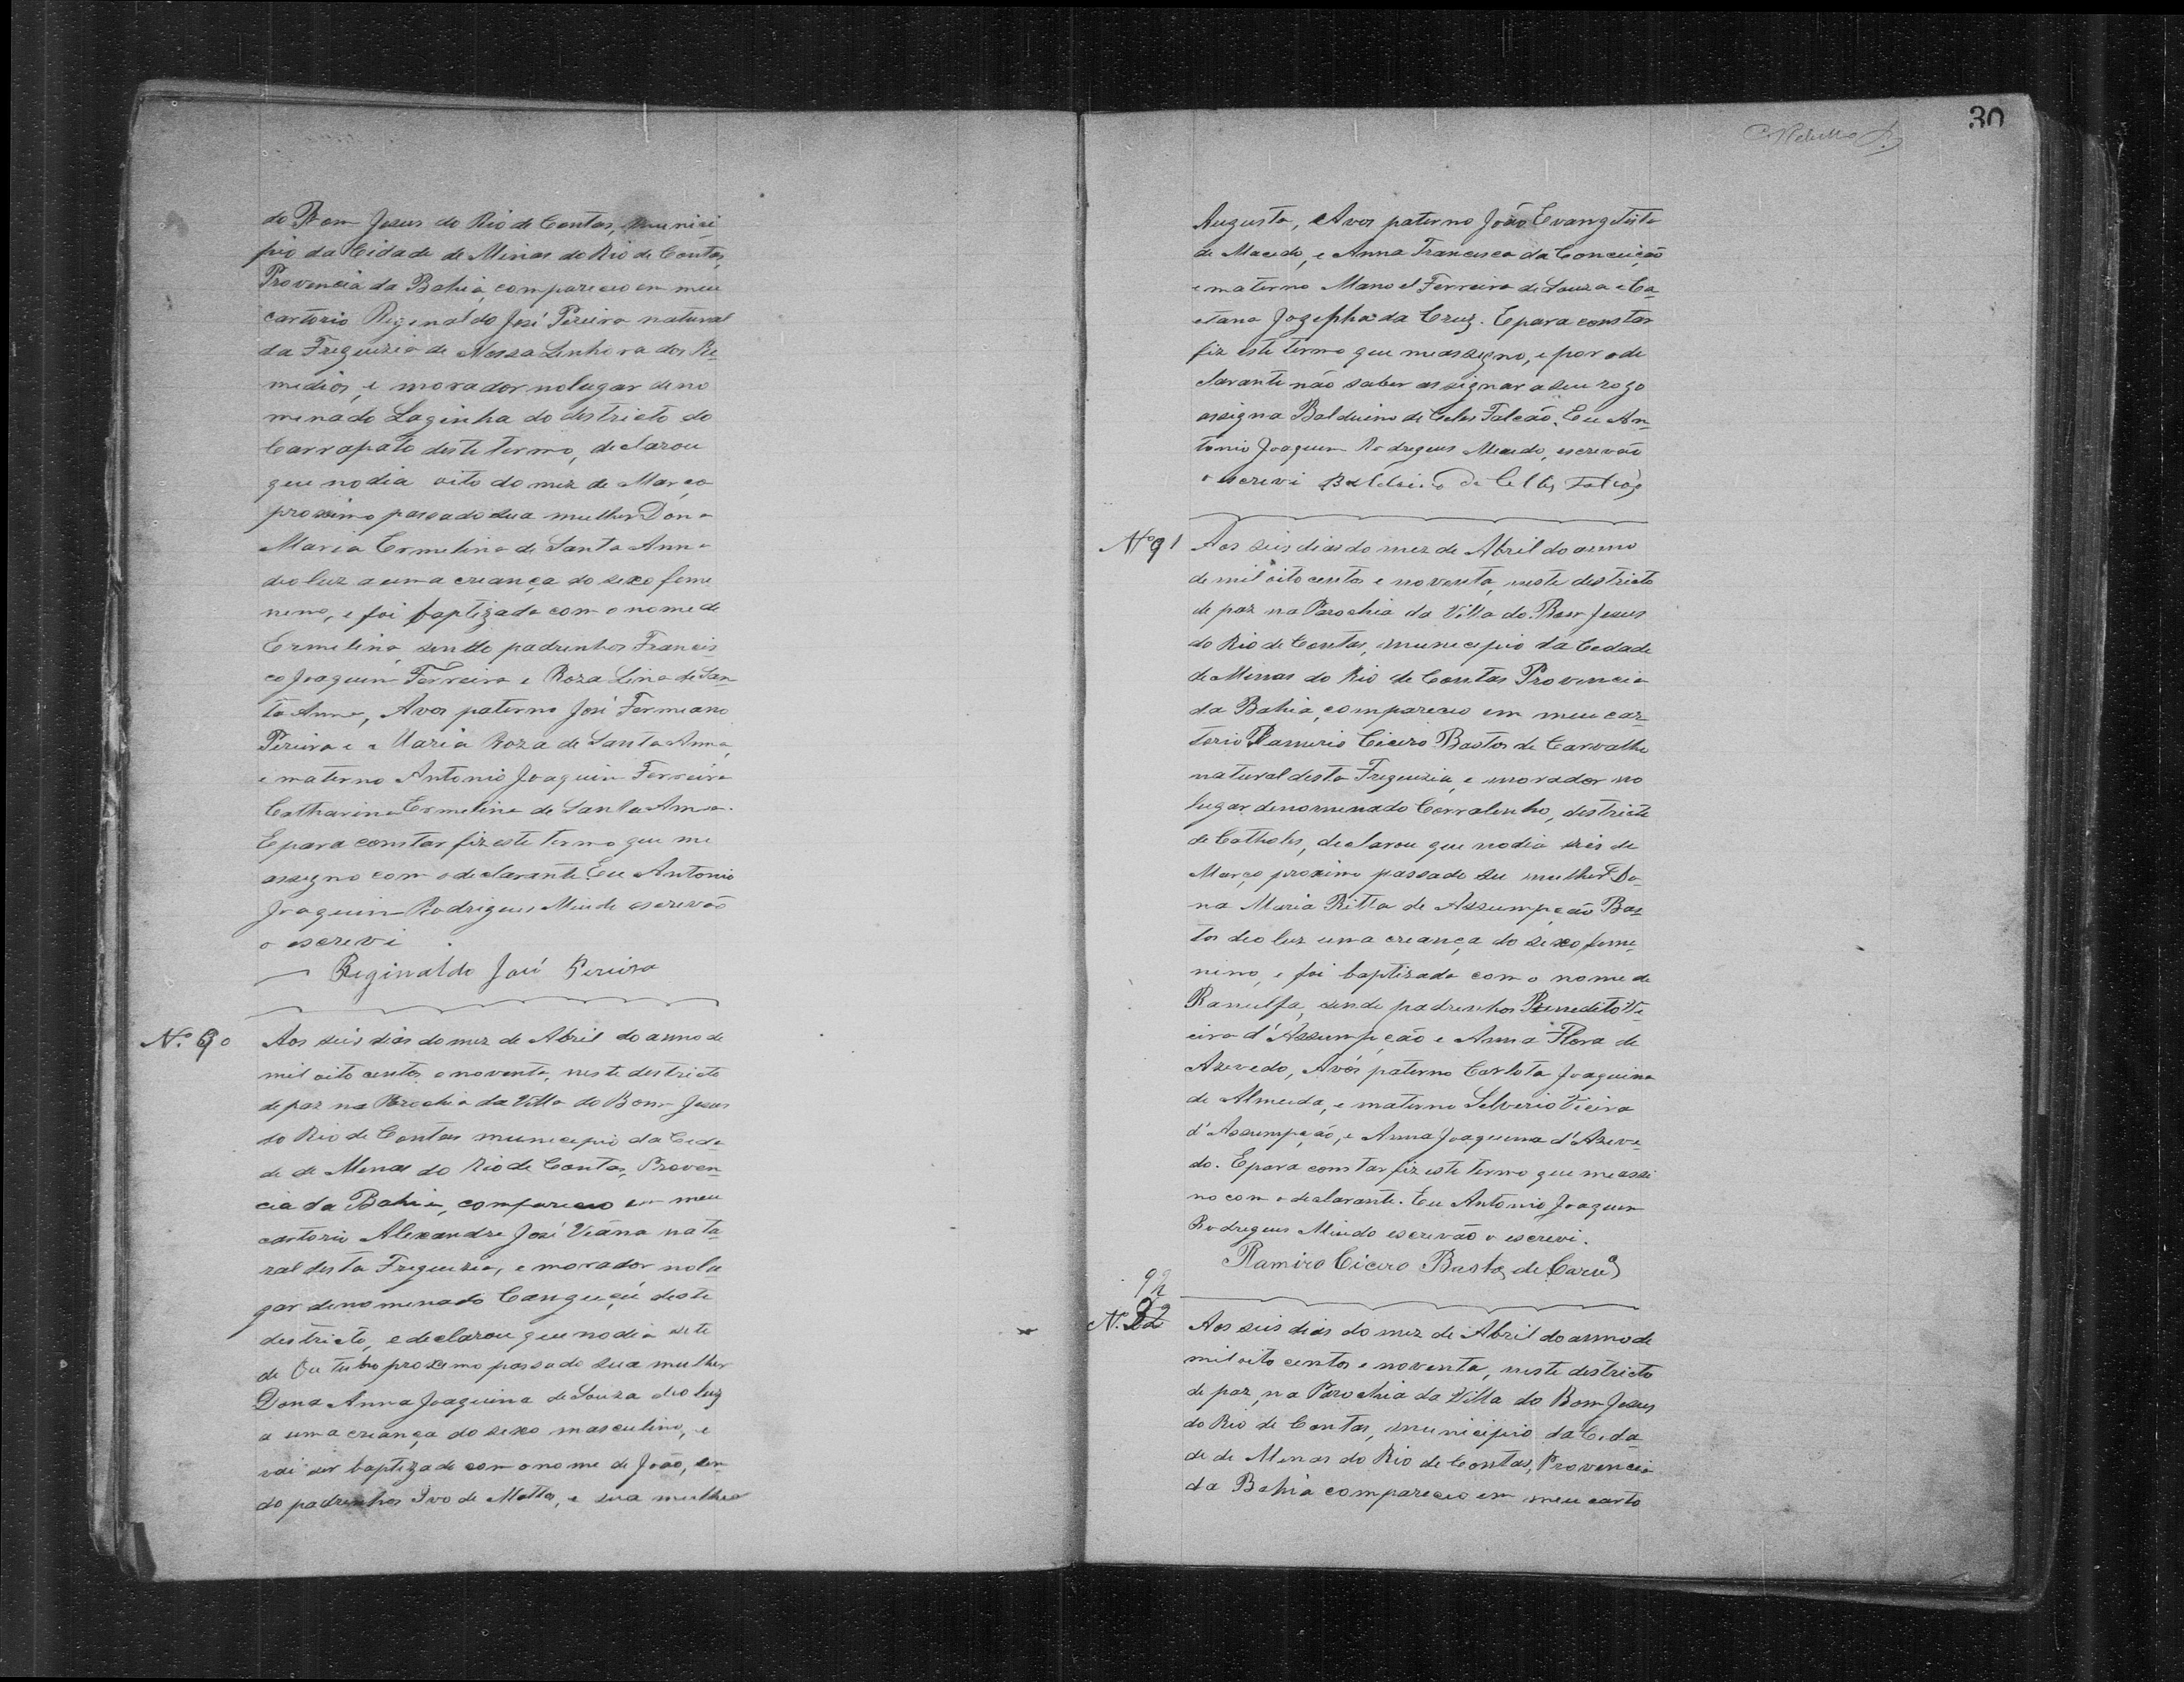 do Bom Jesus do Rio de Contas, munici
pio da Cidade de Minas do Rio de Contas,
Provencia da Bahia, compareceo em meu
cartorio Reginaldo José Pereira natural
da Freguezia de Nossa Senhora dos Re
medios, e morador no lugar deno
menado Laginha do destricto do
Carrapato deste termo, declarou
que no dia oito do mez de Março
proximo passado sua mulher Dona
Maria Ermelina de Santa Anna
deo luz a uma creança do sexo feme
neno, e foi baptizada com o nome de
Ermelina, sendo padrinhos Francis
co Joaquim Ferreira e Roza Lina de San
ta Anna, Avos paterno José Fermiano
Pereira e Maria Roza de Santa Anna,
e materno Antonio Joaquim Ferreira
Catharina Ermelina de Santa Anna.
E para constar fiz este termo que me
assegno com o declarante. Eu Antonio
Joaquim Rodrigues escrevão
o escrevi.
Reginaldo José Pereira
N.º 90
Aos seis dias do mez de Abril do anno de
mil oito centos e noventa, neste destricto
de paz na Parochia da Villa do Bom Jesus
do Rio de Contas municepio da Cida
de de Menas do Rio de Contas, Proven
cia da Bahia, compareceo em meu
cartorio Alexandre José Viana natu
ral desta Freguezia, e morador no lu
gar denomenado Canguçú deste
destricto, e declarou que no dia sete
de Outubro proximo passado sua mulher
Dona Anna Joaquina de Souza deo luz
a uma creança do sexo masculino, e
vai ser baptizado com o nome de João, sen
do padrinhos Ivo de Mattos, e sua mulher
30
Augusta, Avos paterno João Evangelista
de Macedo, e Anna Francisca da Conceição
e materno Manoel Ferreira de Souza e Ca
etana Jozepha da Cruz. E para constar
fiz este termo que me assegno, e por o de
clarante não saber assignar a seu rogo
assigna Balduino de Telles Falcão. Eu An
tonio Joaquim Rodregues escrevão
o escrevi Balduino de Telles Falcão
Nº 91
Aos seis dias do mez de Abril do anno
de mil oito centos e noventa, neste destricto
de paz na Parochia da Villa do Bom Jesus
do Rio de Contas, municepio da Cedade
de Minas do Rio de Contas Provencia
da Bahia, compareceo em meu car
torio Ramerio Cicero Bastos de Carvalho
natural desta Freguezia, e morador no
lugar denomenado Corralinho, destricto
de Catholes, declarou que no dia seis de
Março proximo passado su mulher Do
na Maria Ritta de Assumpção Bas
tos deo luz uma creança do sexo feme
nino, e foi baptisada com o nome de
Ranulfa, sendo padrinhos Beneditto Vi
eira d'Assumpção e Anna Flora de
Azevedo, Avós paterno Carlota Joaquina
de Almeida, e materno Selverio Vieira
d'Assumpção, e Anna Joaquina d'Azeve
do. E para constar fiz este termo que me assi
no com o declarante. Eu Antonio Joaquim
Rodregues escrevão o escrevi.
Ramiro Cicero Bastos de Carvº
92
N. 92
Aos seis dias do mez de Abril do anno de
mil oito centos e noventa, neste destricto
de paz, na Parochia da Villa do Bom Jesus
do Rio de Contas, municipio da Cida
de de Menas do Rio de Contas, Provencia
da Bahia compareceo em meu carto